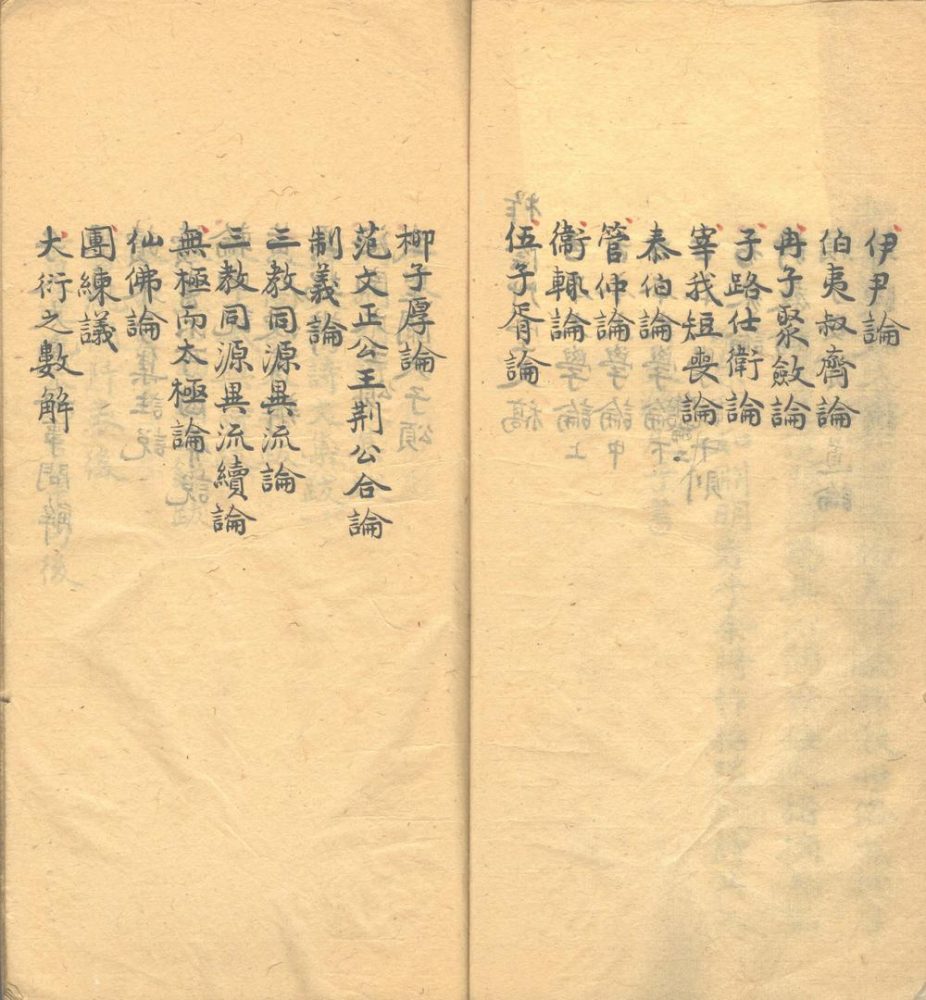 伊尹論
伯夷叔齊論
冉子聚斂論
子路仕衛論
宰我短喪論
泰伯論
管仲論
衞輒論
伍子胥論
柳子厚論
范文正公王荆公合論
制義論
三教同源異流論
三教同源異流續論
無極而太極論
仙佛論
團練議
大衍之數解